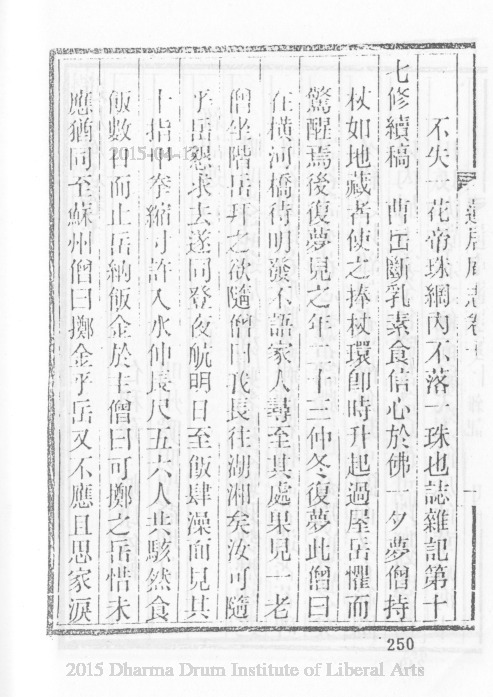 蓮居庵志卷
不失一花帝珠網內不落一珠也誌雜記第十
七修續稿 曹岳斷乳素食信心於佛一夕夢僧持
杖如地藏者使之捧杖環卽時升起過屋岳懼而
驚醒焉後復夢見之年二十三仲冬復夢此僧曰
在橫河橋待明發不語家人尋至其處果見一老
僧坐階岳拜之欲隨僧曰我長往湖湘矣汝可隨
乎岳懇求去遂同登夜航明日至飯肆澡面見其
十指 拳縮寸許入水伸長尺五六人共駭然食
飯數 而止岳納飯金於主僧曰可擲之岳惜未
應猶同至蘇州僧曰擲金乎岳又不應且思家淚
一
250
2015-04-1
2015 Dharma Drum Institute of Liberal Arts